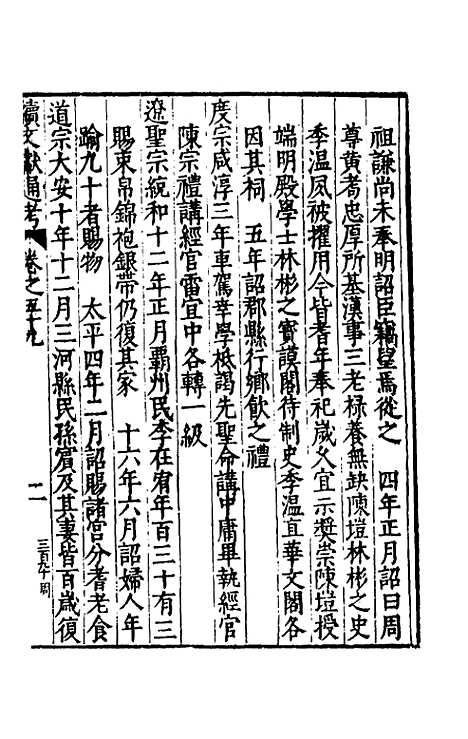 祖謙尚未奉明詔臣竊望焉從之　四年正月詔曰周
尊黄耇忠厚所基漢事三老祿養無缺陳塏林彬之史
季温夙被擢用今皆耆年奉祀歲久宜示奬崇陳塏授
端明殿學士林彬之寳謨閣待制史季温直華文閣各
因其祠　五年詔郡縣行鄉飲之禮
度宗咸淳三年車駕幸學袛謁先聖命講中庸畢執經官
陳宗禮講經官雷宜中各轉一級
遼聖宗統和十二年正月覇州民李在宥年百三十有三
賜束帛錦袍銀帶仍復其家　十六年六月詔婦人年
踰九十者賜物　太平四年二月詔賜諸宫分耆老食
道宗大安十年十二月三河縣民孫賔及其妻皆百歲復
續文獻通考　卷之五十九　二　三百九十周